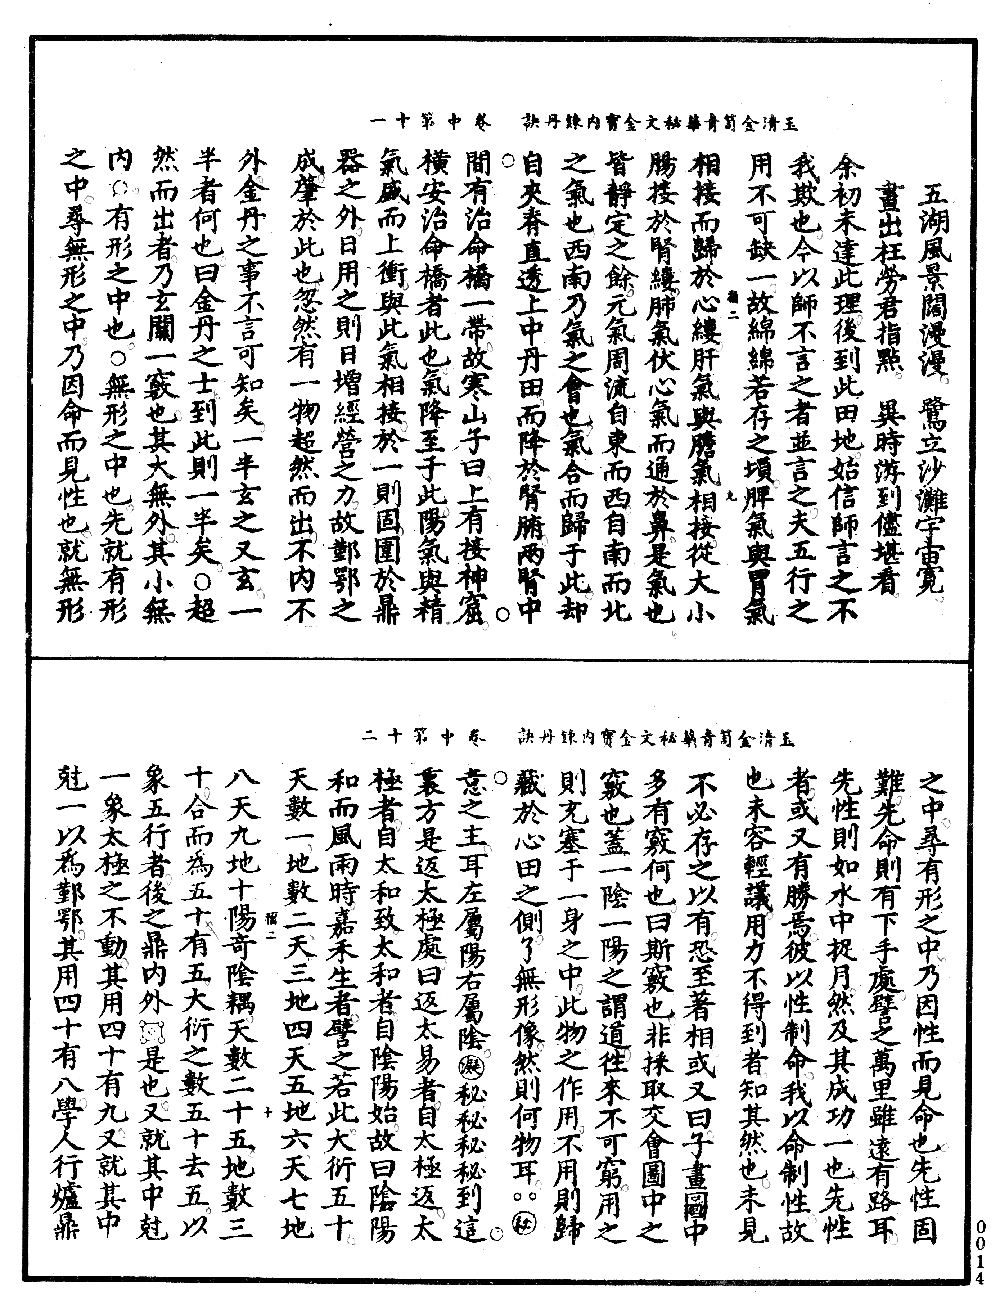 玉清金笥青華秘文金寶內鍊丹訣　卷中第十一
五湖風景闊漫漫　鷺立沙灘宇宙寬
畫出枉勞君指點　異時游到儘堪看
余初未達此理後到此田地始信師言之不
我欺也今以師不言之者並言之夫五行之
用不可缺一故綿綿若存之頃脾氣與胃氣
相接而歸於心縷肝氣與膽氣相接從大小
腸接於腎縷肺氣伏心氣而通於鼻是氣也
皆靜定之餘元氣周流自東而西自南而北
之氣也西南乃氣之會也氣合而歸于此却
自夾脊直透上中丹田而降於腎腑兩腎中
間有治命橋一帶故寒山子曰上有接神窟
橫安治命橋者此也氣降至于此陽氣與精
氣盛而上衝與此氣相接於一則固圍於鼎
器之外日用之則日增經營之力故鄞鄂之
成肇於此也忽然有一物超然而出不內不
外金丹之事不言可知矣一半玄之又玄一
半者何也曰金丹之士到此則一半矣○超
然而出者乃玄關一竅也其大無外其小無
內○有形之中也○無形之中也先就有形
之中尋無形之中乃因命而見性也就無形
玉清金笥青華秘文金寶內鍊丹訣　卷中第十二
之中尋有形之中乃因性而見命也先性固
難先命則有下手處譬之萬里雖遠有路耳
先性則如水中捉月然及其成功一也先性
者或又有勝焉彼以性制命我以命制性故
也未容輕議用力不得到者知其然也未見
不必存之以有恐至著相或又曰子畫圖中
多有竅何也曰斯竅也非採取交會圖中之
竅也蓋一陰一陽之謂道往來不可窮用之
則充塞于一身之中此物之作用不用則歸
藏於心田之側了無形像然則何物耳○○
意之主耳左屬陽右屬陰秘秘秘秘到這
裏方是返太極處曰返太易者自太極返太
極者自太和致太和者自陰陽始故曰陰陽
和而風雨時嘉禾生者譬之若此大衍五十
天數一地數二天三地四天五地六天七地
八天九地十陽奇陰耦天數二十五地數三
十合而為五十有五大衍之數五十去五以
象五行者後之鼎內外是也又就其中尅
一象太極之不動其用四十有九又就其中
尅一以為鄞鄂其用四十有八學人行爐鼎
0014